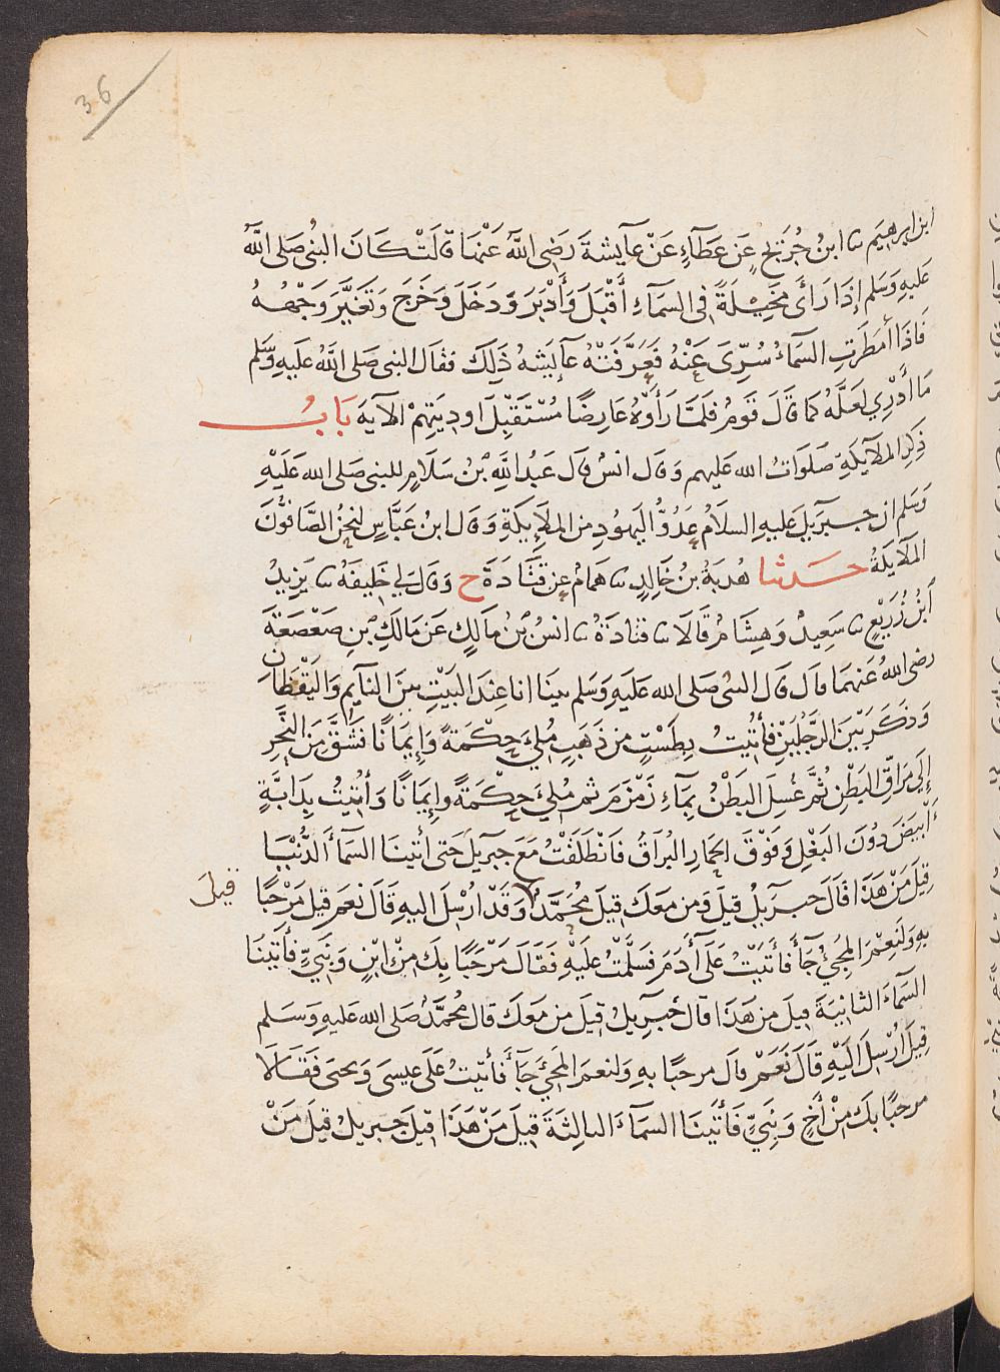 36
ابن ابرهيم ثنا ابنُ جُرَيجٍ عَن عَطَآءٍ عَنْ عآيشةَ رَضِى اللهُ عَنْهَا قَالَتْ كَانَ النبىُّ صَلى اللهُ
عَليهِ وَسَلم إذَا رَأى مَخِيْلَةً فى السمَآءِ أَقْبَلَ وَأَدْبَرَ وَدَخَلَ وَخَرَجَ وَتَغَيَّرَ وَجْهُهُ
فَاذَا أمطَرَتِ السمَآءُ سُرِّىَ عَنْهُ فَعَرَّفَتْهُ عآيشهُ ذَلِكَ فقال النبى صَلى اللهُ عليهِ وسَلم
مَا أدْرِي لعَلَّهُ كما قَالَ قَومٌ فلمَّا رَأَوْهُ عَارِضًا مُسْتَقْبِلَ اودِيَتِهِمْ الآيه بَابُ
ذِكرِ الملآيكَةِ صَلوَاتُ الله عليهم وَقال انسٌ قال عَبْدُ اللهِ بْنُ سَلَامٍ للنبى صَلى الله عَليْهِ
وَسَلم ان جبريلَ عَليهِ السلامُ عَدُوُّ اليَهُودِ من الملآئِيكَةِ وَقال ابنُ عَبَّاسٍ لنحنُ الصَّافُّونَ
الملآيكةُ حدثنا هُدبَةُ بنُ خَالِدٍ ثنا هَمامٌ عن قَتَادَةَ ح وَقَال لي خليفَهُ ثنا يَزِيدُ
أبنُ زُرَيْعٍ ثنا سَعِيدٌ وَهِشَامٌ قَالَا ثنا قتادَةُ ثنا انسُ بْنُ مَالِكٍ عَن مَالكِ بْنِ صَعْصَعَةَ
رضى اللهُ عَنهمَا قال قَال النبىُ صَلى الله عَليهِ وَسَلم بينَا انا عِندَ البَيْتِ بينَ النآيمِ وَاليَقْظَانِ
وَذكَرَ بَيْنَ الرَّجُلَيْنِ فَأُتِيتُ بِطَسْتٍ من ذَهَبٍ مُلِئَ حِكْمَةً وَإيمَانًا فَشُقَّ مِنَ النَّحْرِ
إلى مَرَاقِّ البَطْنِ ثُمَّ غُسِلَ البَطْنُ بمَآءِ زَمْزَمَ ثم مُلِئَ حِكْمَةً وإيمَانًا وَأُتِيتُ بِدَابَّةٍ
أَبيَضَ دُونَ البَغْلِ وَفَوْقَ الحِمَارِ البُرَاقُ فَانْطَلَقْتُ مَعَ جبريلَ حَتى أتينَا السمآءَ الدُّنْيَا
قِيلَ مَنْ هَذَا قَالَ جبريلُ قِيلَ وَمن مَعَكَ قيلَ مُحَمَّدٌ وَقَدْ أُرْسِلَ اليهِ قَالَ نعَم قِيل مَرْحَبًا
قيلَ
بهِ وَلَنِعْمَ المَجِئُ جَآءَ فَأَتيْتُ عَلَى آدَمَ فَسَلَّمْتُ عَليْهِ فَقَالَ مَرْحَبًا بِكَ مِنْ ابْنٍ وَنَبِيٍّ فأتيْنَا
السَمآءَ الثانيةَ قيلَ من هَذَا قَال جبريلُ قيلَ من مَعَكَ قال مُحمَّدٌ صَلى الله عَليهِ وَسَلم
قِيلَ أُرْسِلَ اليْهِ قَالَ نَعَمْ قال مرحبًا بهِ وَلنعمَ المَجِئُ جَآءَ فَأَتيتُ عَلَى عيسَى وَيحيَى فَقَالَا
مرحبًا بكَ مِنْ أخٍ وَنَبِيٍّ فَأَتَينَا السمَآءَ الثالِثَةَ قِيلَ مَنْ هَذَا قيلَ جبريلُ قيلَ مَنْ